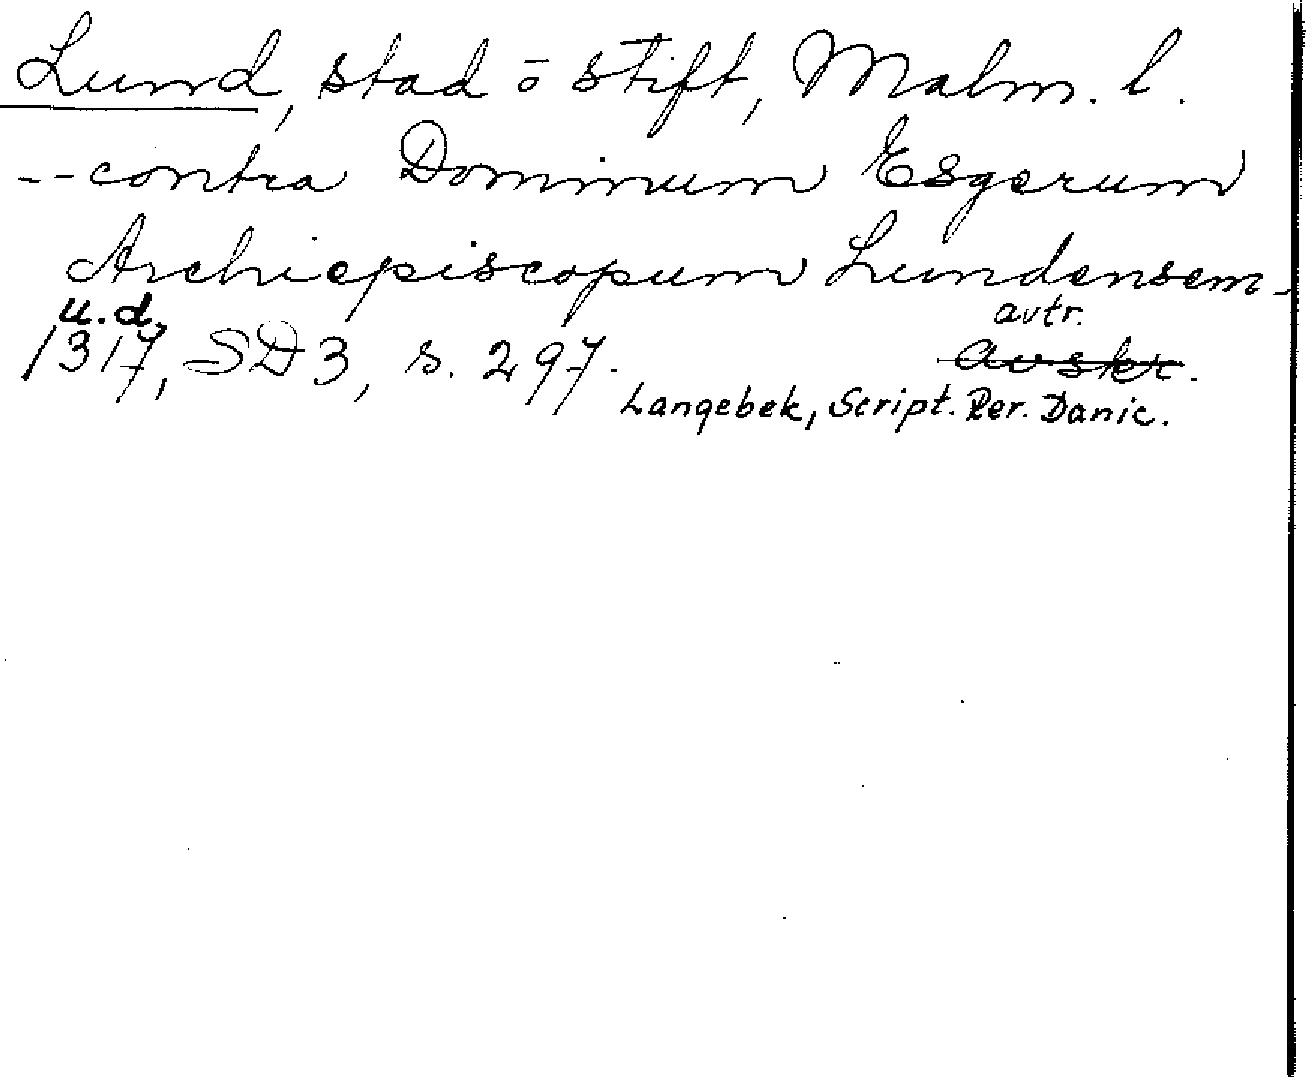 Lund, stad o stift, Malm. l.
-- contra Dominum Esgerum
Archiepiscopum Lundensem -
u.d. avtr.
1317, SD 3, s. 297. avskr.
Langebek, Script. Rer. Danic.